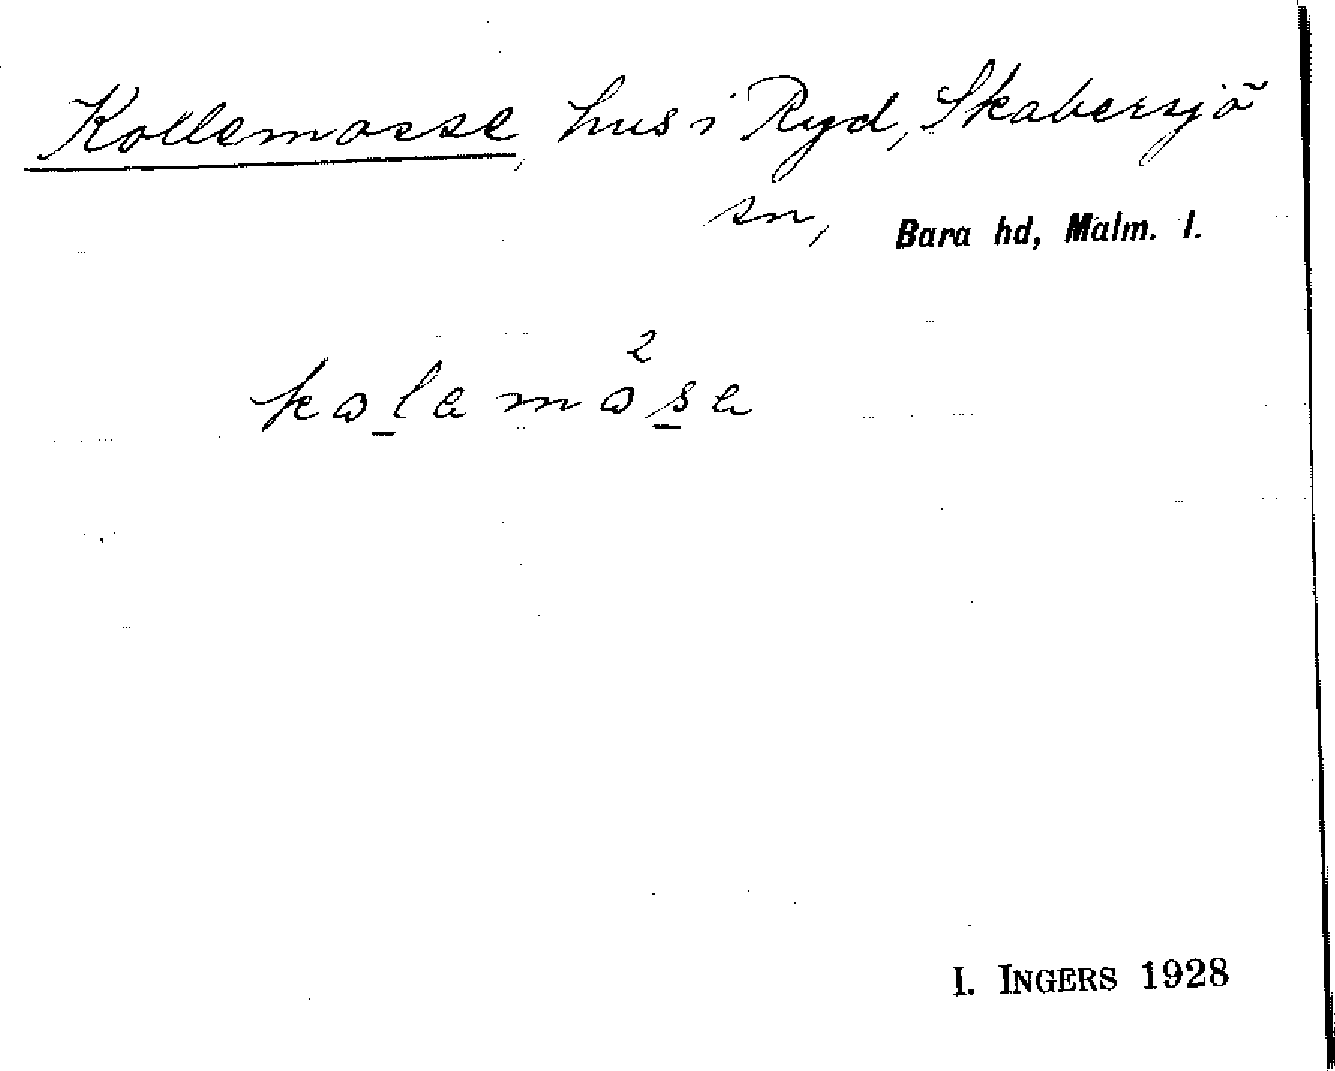 Kollemosse, hus i Ryd, Skabersjö
sn, Bara hd, Malm. l.
kolamåsa
I. INGERS 1928